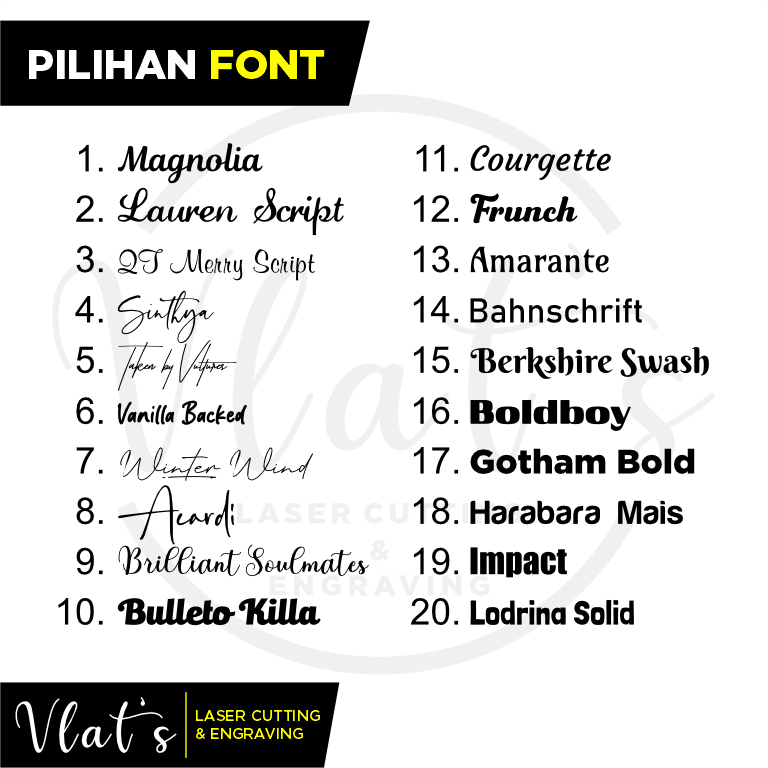 PILIHAN FONT
1. Magnolia
2. Lauren Script
3. QT Merry Script
4. Sinthya
5. Taken by Vultures
6. Vanilla Backed
7. Winter Wind
8. Acardi
9. Brilliant Soulmates
10. Bulleto Killa
11. Courgette
12. Frunch
13. Amarante
14. Bahnschrift
15. Berkshire Swash
16. Boldboy
17. Gotham Bold
18. Harabara Mais
19. Impact
20. Lodrina Solid
Vlat's
LASER CUTTING
&
ENGRAVING
Vlat's
LASER CUTTING
& ENGRAVING